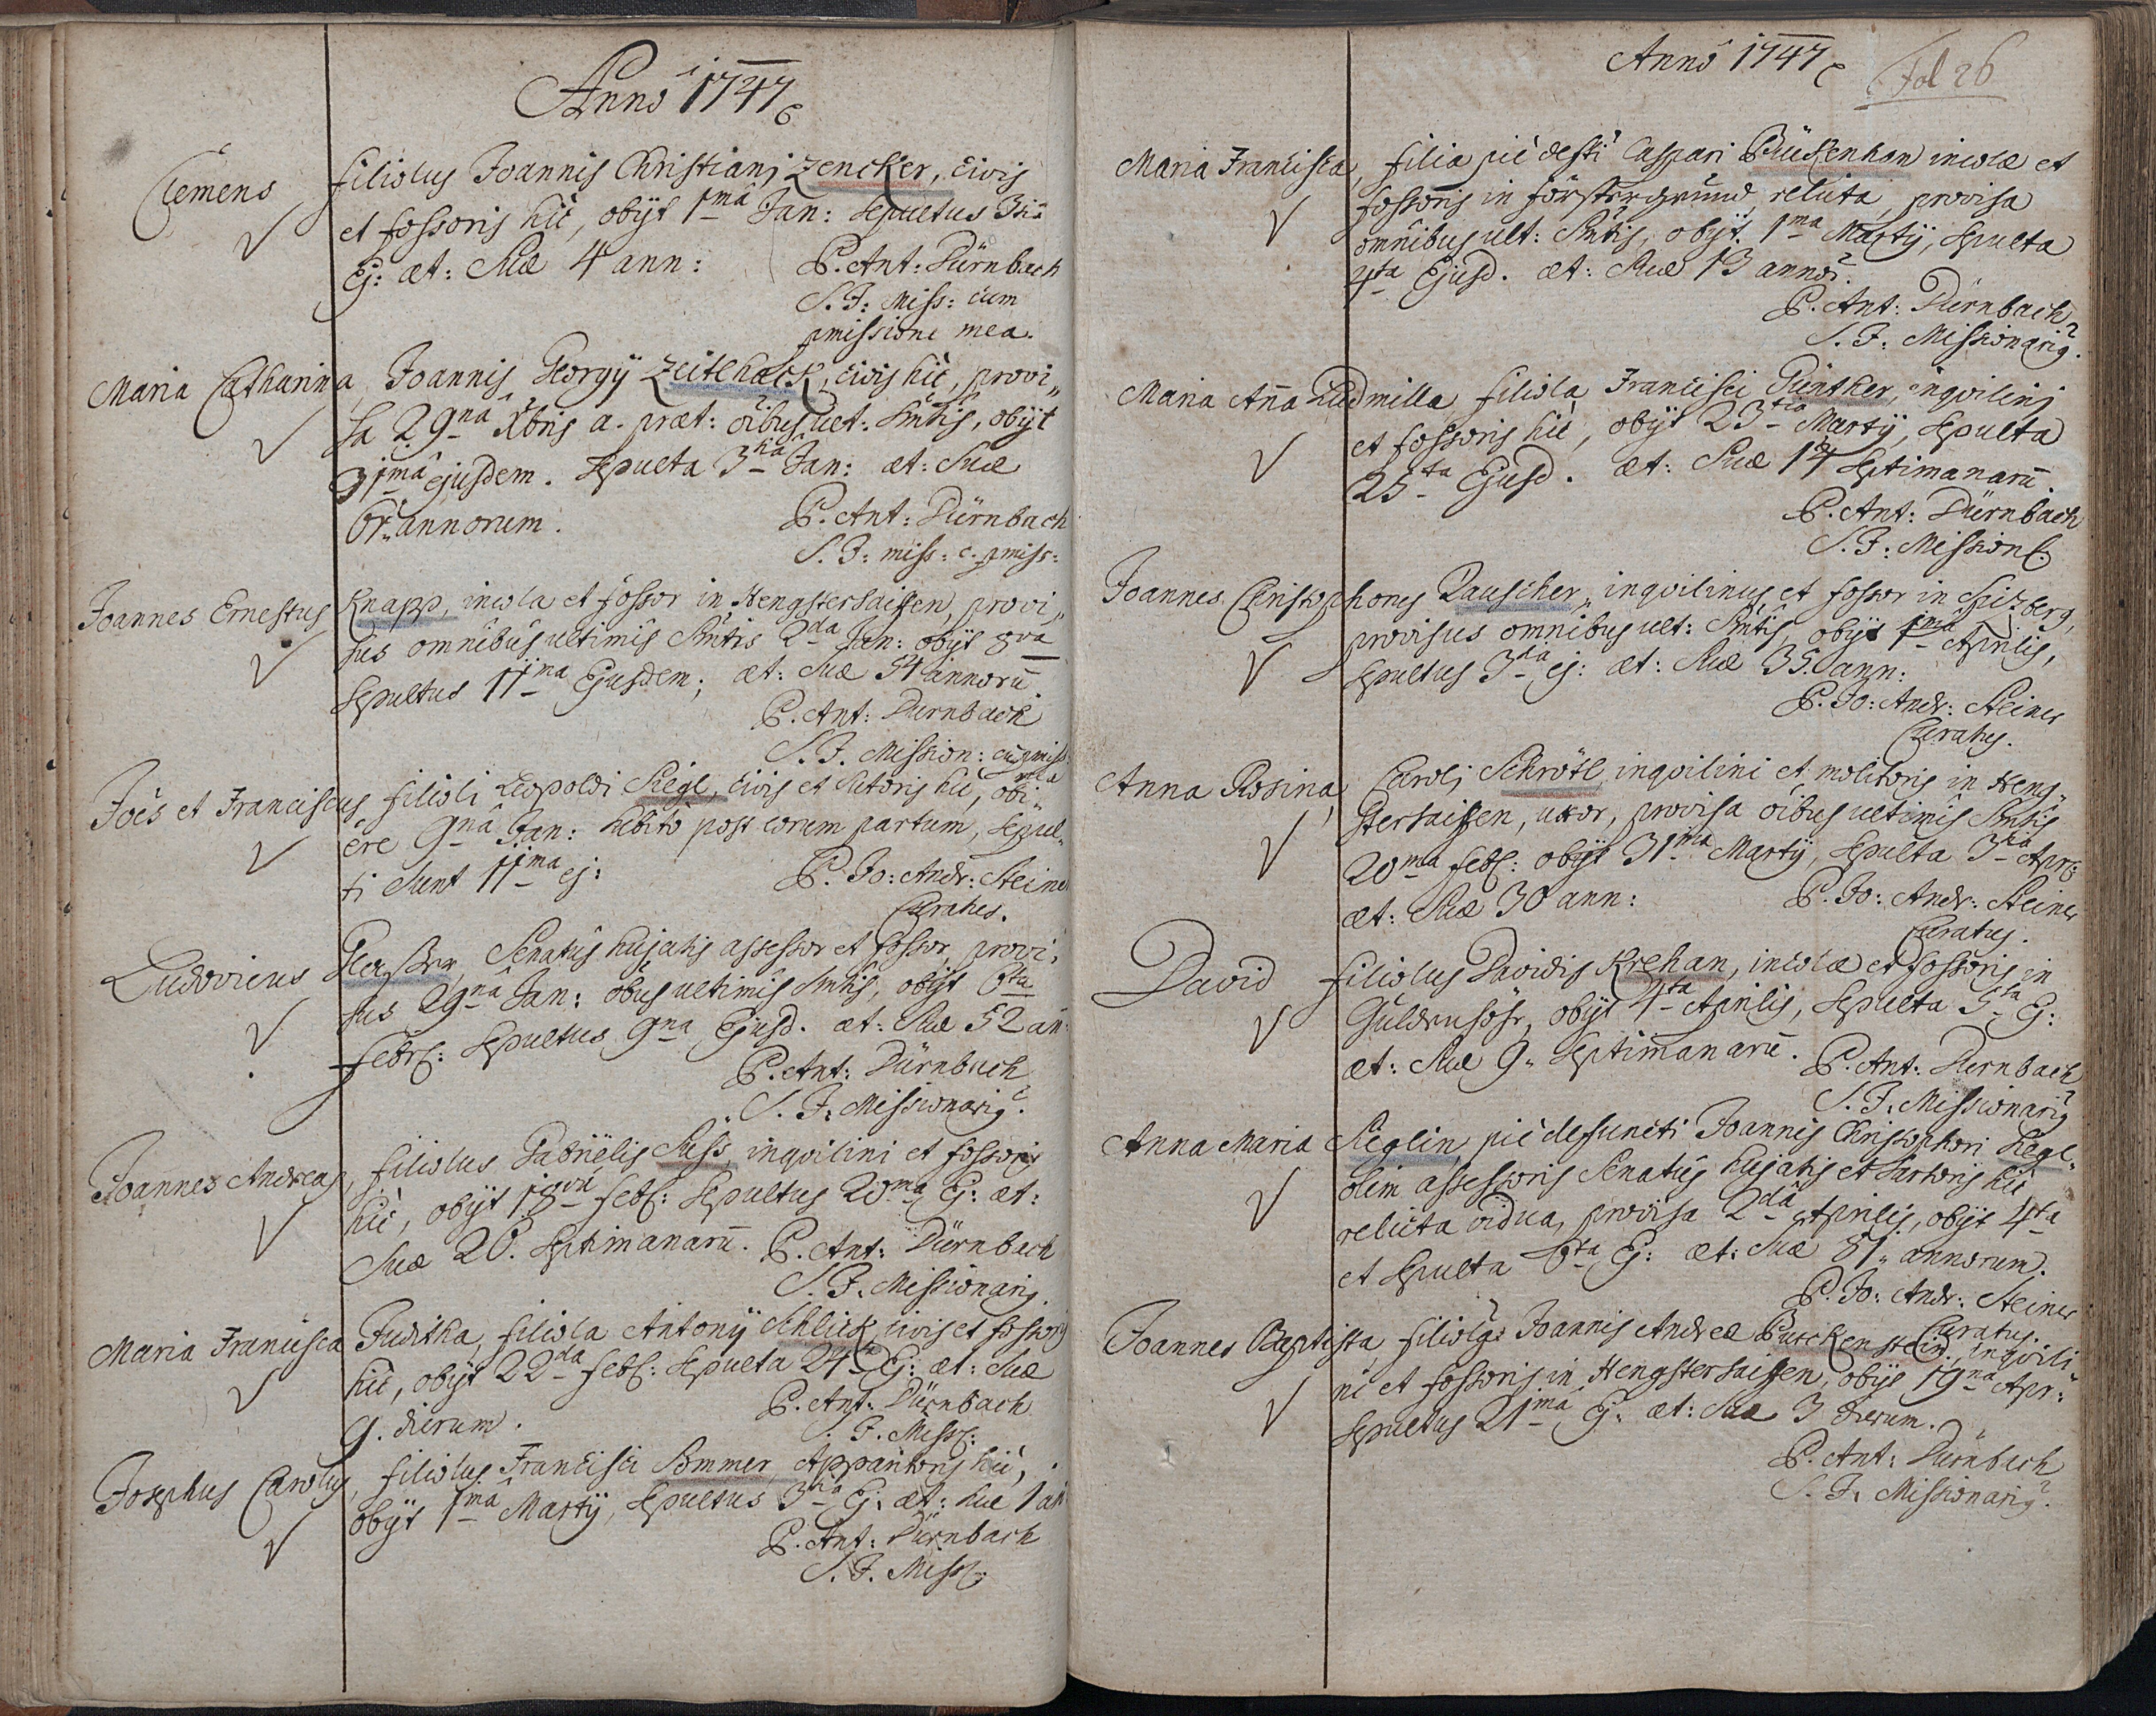 Anno 1747
Clemens, filiolus Joannis Christiani Zencker, civis
et fossoris hic, obijt 1mâ Jan: sepultus 3tia
Ej: æt: suæ 4 ann: P. Ant: Dürnbach
S. J: Miss: cum
pmissione mea.
Maria Catharina, Joannis Georgij Zeitlhack, civis hic, provi„
sa 29nâ Xbris a. præt: oibus ult: Smtis, obijt
31mâ ejusdem. Sepulta 3tia Jan: æt: suæ
annorum. P. Ant: Dürnbach
S. J: miss: c. pmiss:
Joannes Ernestus Knapp, incola et fossor in Hengstersaissen, provi„
sus omnibus ultimis Smtis 2da Jan: obijt 8va
sepultus 11ma Ejusdem; æt: suæ 54 annorũ.
P. Ant: Dürnbach
S. J. Mission: cũ pmiss:
mea
Joẽs et Franciscus filioli Leopoldi Siegl, civis et sutoris hic, obi„
êre 9nâ Jan: subito post eorum partum, sepul„
ti sunt 11ma ej: P. Jo: Andr: Steiner
Curatus.
Ludovicus Senatûs hujatis assessor et fossor, provi„
sus 29nâ Jan: oibus ultimis Smtis, obijt 6ta
febr: sepultus 9na Ejusd. æt: suæ 52 an:
P. Ant: Dürnbach
S. J. Missionarig.
Joannes Andreas, filiolus Gabriëlis Süss, inqvilini et fossoris
hic, obijt 18va feb: sepultus 20ma Ej: æt:
suæ 20. septimanarũ. P. Ant: Dürnbach
S. J. Missionarig.
Maria Francisca Juditha, filiola Antonij Schlick, civis et fossoris
hic, obijt 22da feb: sepulta 24ta Ej: æt: suæ
9. dierum. P. Ant: Dürnbach
S. J. Miss:
Josephus Carolus, filiolus Francisci Sommer, Apparitoris hic,
obijt 1mâ Martij, sepultus 3tia Ej: æt: suæ 1 an
P. Ant: Dürnbach
S. J. Miss:
Anno 1747
Fol 26
Maria Francisca, filia piè defti Caspari Bückenhon incolæ et
fossoris in försstergrund relicta, provisa
omnibus ult: Smtis, obijt. 1ma Martij, sepulta
4ta Ejusd. æt: suæ 13 annor.
P. Ant: Dürnbach
S. J: Missionarig.
Maria Aña Ludmilla filiola Francisci Günther, inqvilini
et fossoris hic, obijt 23tia Martij, sepulta
25ta Ejusd. æt: suæ septimanarũ.
P. Ant: Dürnbach
S. J: Mission:
Joannes Christophorus Rauscher, inqvilinus et fossor in Spizberg,
provisus omnibus ult: Smtis, obijt 1mâ Aprilis,
sepultus 3tia ej: æt: suæ 35. ann:
P. Jo: Andr: Steiner
Curatus.
Anna Rosina, Caroli Schrötl, inqvilini et molitoris in Heng„
stersaissen, uxor, provisa oibus ultimis Smtis
20ma feb: obijt 31ma Martij, sepulta 3tia Apr:
æt: suæ 30 ann: P. Jo: Andr: Steiner
Curatus.
David filiolus Davidis Krehan, incolæ et fossoris in
Güldenhöhr, obijt 4ta Aprilis, sepulta 5ta Ej:
æt: suæ 9. septimanarũ. P. Ant: Dürnbach
S. J: Missionarig
Anna Maria Sieglin, piè defuncti Joannis Christophori Siegl„
olim assessoris Senatûs hujatis et sartoris hic
relicta vidua, provisa 2dâ Aprilis, obijt 4ta
et sepulta 6ta Ej: æt: suæ 81. annorum.
P. Jo: Andr: Steiner
Curatus.
Joannes Baptista, filiolg Joannis Andreæ Purckenstein, inqvili
ni et fossoris in Hengstersaissen, obijt 19na Apr:
sepultus 21mâ Ej: æt: suæ 3 dierum.
P. Ant: Dürnbach
S. J. Missionarig.